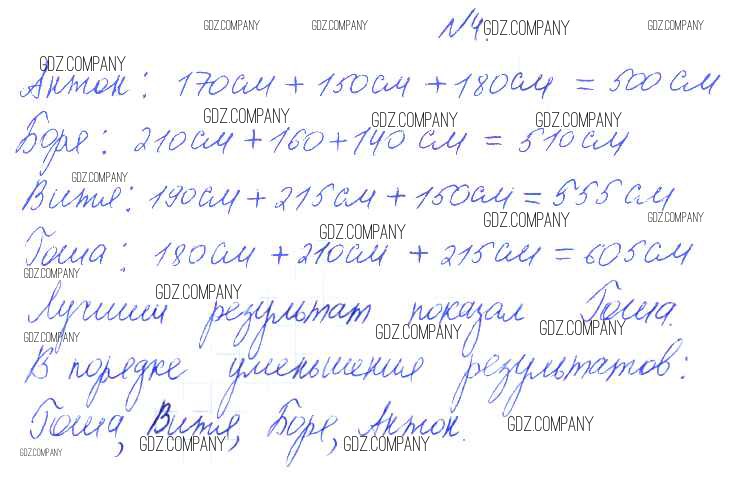 GDZ.COMPANY GDZ.COMPANY №4. GDZ.COMPANY GDZ.COMPANY
GDZ.COMPANY
Антон: 170см + 150см + 180см = 500см
GDZ.COMPANY GDZ.COMPANY GDZ.COMPANY
Боря: 210см + 160 + 140 см = 510см
GDZ.COMPANY
Витя: 190см + 215см + 150см = 555см
GDZ.COMPANY GDZ.COMPANY GDZ.COMPANY
Гоша: 180см + 210см + 215см = 605см
GDZ.COMPANY GDZ.COMPANY
Лучший результат показал Гоша.
GDZ.COMPANY GDZ.COMPANY GDZ.COMPANY
В порядке уменьшения результатов:
Гоша, Витя, Боря, Антон.
GDZ.COMPANY GDZ.COMPANY GDZ.COMPANY GDZ.COMPANY